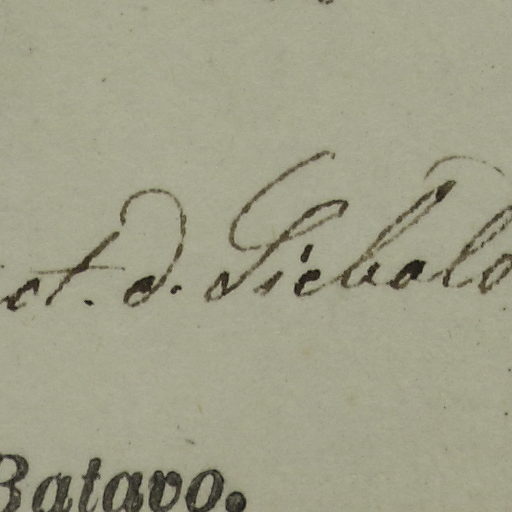 ot. d. Siebold
Batavo.